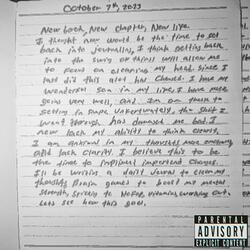 October 7th, 2023
New book, New chapter, New life.
I thought now would be the time to get
back into journaling, I think getting back
into the swing of things will allow me
to focus on cleaning my head. Since I
last did this a lot has changed. I have my
wonderful son in my life, I have been
going very well, and I'm on there to
setting in place. Unfortunately, the shit I
went through has damaged me bad. I
now lack my ability to think clearly.
I am in my thoughts more
and lack clarity. I believe this to be
the time to important changes.
I'll be writing a daily to clean my
thoughts, Brain games to boost my mental
strength, working out.
Lets see how this goes.
PARENTAL
ADVISORY
EXPLICIT CONTENT